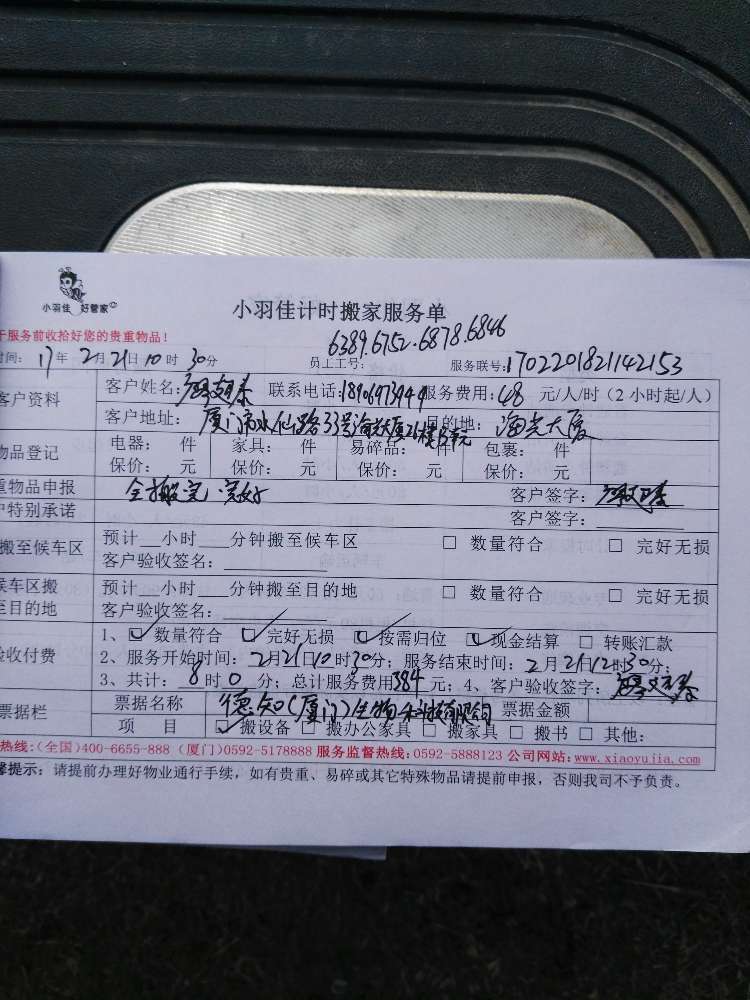 小羽佳 好管家
小羽佳计时搬家服务单
6389.6752.6878.6846
于服务前收拾好您的贵重物品！
时间：17年2月21日10时30分 员工工号： 服务联号：1702201821142153
客户资料 客户姓名： 联系电话： 服务费用：48 元/人/时（2小时起/人）
客户地址：厦门市水仙路33号海光大厦 目的地：海光大厦
物品登记 电器： 件 家具： 件 易碎品： 件 包裹： 件
保价： 元 保价： 元 保价： 元 保价： 元
重物品申报 全搬完 完好 客户签字：
户特别承诺 客户签字：
搬至候车区 预计 小时 分钟搬至候车区 □ 数量符合 □ 完好无损
客户验收签名：
候车区搬至目的地 预计 小时 分钟搬至目的地 □ 数量符合 □ 完好无损
客户验收签名：
验收付费 1、☑ 数量符合 ☑ 完好无损 ☑ 按需归位 ☑ 现金结算 □ 转账汇款
2、服务开始时间：2月21日10时30分；服务结束时间：2月21日12时30分；
3、共计：8时0分；总计服务费用384元；4、客户验收签字：
票据栏 票据名称 德知(厦门)生物科技有限公司 票据金额
项 目 ☑ 搬设备 □ 搬办公家具 □ 搬家具 □ 搬书 □ 其他：
热线：(全国)400-6655-888 (厦门)0592-5178888 服务监督热线：0592-5888123 公司网站：www.xiaoyujia.com
馨提示：请提前办理好物业通行手续，如有贵重、易碎或其它特殊物品请提前申报，否则我司不予负责。